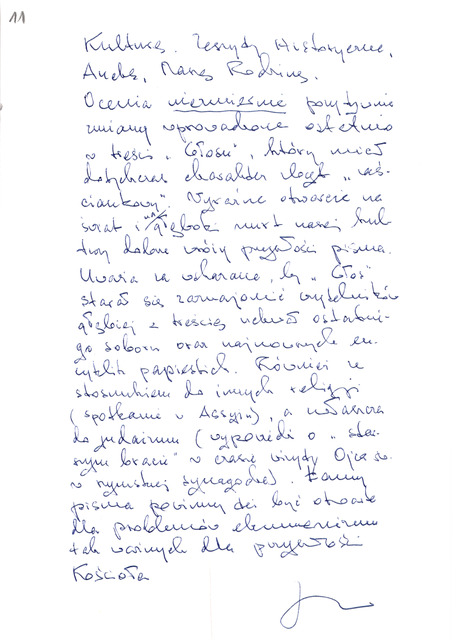 11
Kulturę, Zeszyty Historyczne,
Aneks, Naszą Rodzinę.
Ocenia niezmiernie pozytywnie
zmiany wprowadzone ostatnio
w treści „Głosu", który miał
dotychczas charakter zbyt „zaś-
ciankowy". Wyraźne otwarcie na
świat i na głęboki nurt naszej kul-
tury dobrze wróży przyszłości pisma.
Uważa za wskazane, by „Głos"
starał się zaznajomić czytelników
głębiej z treścią uchwał ostatnie-
go soboru oraz najnowszych en-
cyklik papieskich. Również ze
stosunkiem do innych religji
(spotkanie w Assyżu), a zwłaszcza
do judaizmu (wypowiedź o „star-
szym bracie" w czasie wizyty Ojca św.
w rzymskiej synagodze). Łamy
pisma powinny też być otwarte
dla problemów ekumenizmu
tak ważnych dla przyszłości
Kościoła